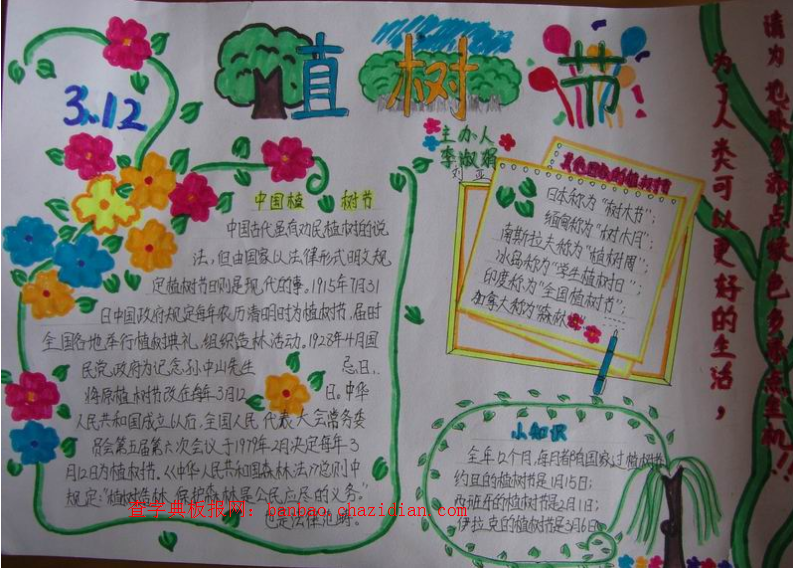 3.12
植树节
主办人
李淑娟
刘亚
中国植树节
中国古代虽有劝民植树的说
法,但由国家以法律形式明文规
定植树节日则是现代的事。1915年7月31
日中国政府规定每年农历清明时为植树节,届时
全国各地举行植树典礼,组织造林活动。1928年4月国
民党政府为记念孙中山先生忌日、
将原植树节改在每年3月12日。中华
人民共和国成立以后,全国人民代表大会常务委
员会第五届第六次会议于1979年2月决定每年3
月12日为植树节、《中华人民共和国森林法》总则中
规定:"植树造林、保护森林是公民应尽的义务。"
也是法律范畴。
日本称为"树木节";
缅甸称为"树木月";
南斯拉夫称为"植树周";
冰岛称为"学生植树日";
印度称为"全国植树节";
加拿大称为"森林
小知识
全年12个月,每月都有国家过植树节
约旦的植树节是1月15日;
西班牙的植树节是2月1日;
伊拉克的植树节是3月6日
为了人类可以更好的生活,
请为地球多添点绿色多添点生机!!
查字典板报网:banbao.chazidian.com